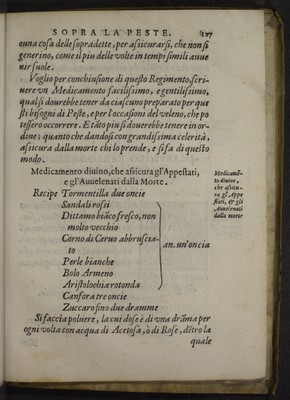 SOPRA LA PESTE. 127
cuna cosa delle sopradette, per assicurarsi, che non si
generino, come il piu delle volte in tempi simili auue
nir suole.
Voglio per conchiusione di questo Regimento, scri-
uere vn Medicamento facilissimo, e gentilissimo,
qual si dourebbe tener da ciascuno preparato per que
sti bisogni di Peste, e per l'occasioni del veleno, che po
tessero occorrere. E tãto piu si dourebbe tenere in or-
dine; quanto che dandosi con grandissima celerità,
assicura dalla morte chi lo prende, e si fa di questo
modo.
Medicamento diuino, che assicura gl'Appestati,
e gl'Auuelenati dalla Morte.
Medicamẽ-
to diuino,
che assicu-
ra gl'Appe
stati, & gli
Auuelenati
dalla morte
Recipe Tormentilla due oncie
Sandali rossi
Dittamo biãco fresco, non
molto vecchio
Corno di Ceruo abbruscia-
to
an. un'oncia
Perle bianche
Bolo Armeno
Aristolochia rotonda
Canfora tre oncie
Zuccaro fino due dramme
Si faccia poluere, la cui dose è di vna drãma per
ogni volta con acqua di Acetosa, ò di Rose, dẽtro la
quale